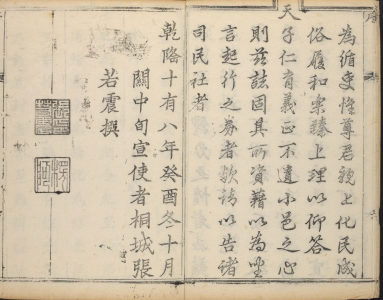 為循吏惟尊君親上化民成
俗履和樂臻上理以仰答
天
子仁育義正不遺小邑之心
則茲誌固具所資藉以為坐
言起行之券者歟請以告諸
司民社者
乾隆十有八年癸酉冬十月
關中旬宣使者桐城張
若震撰